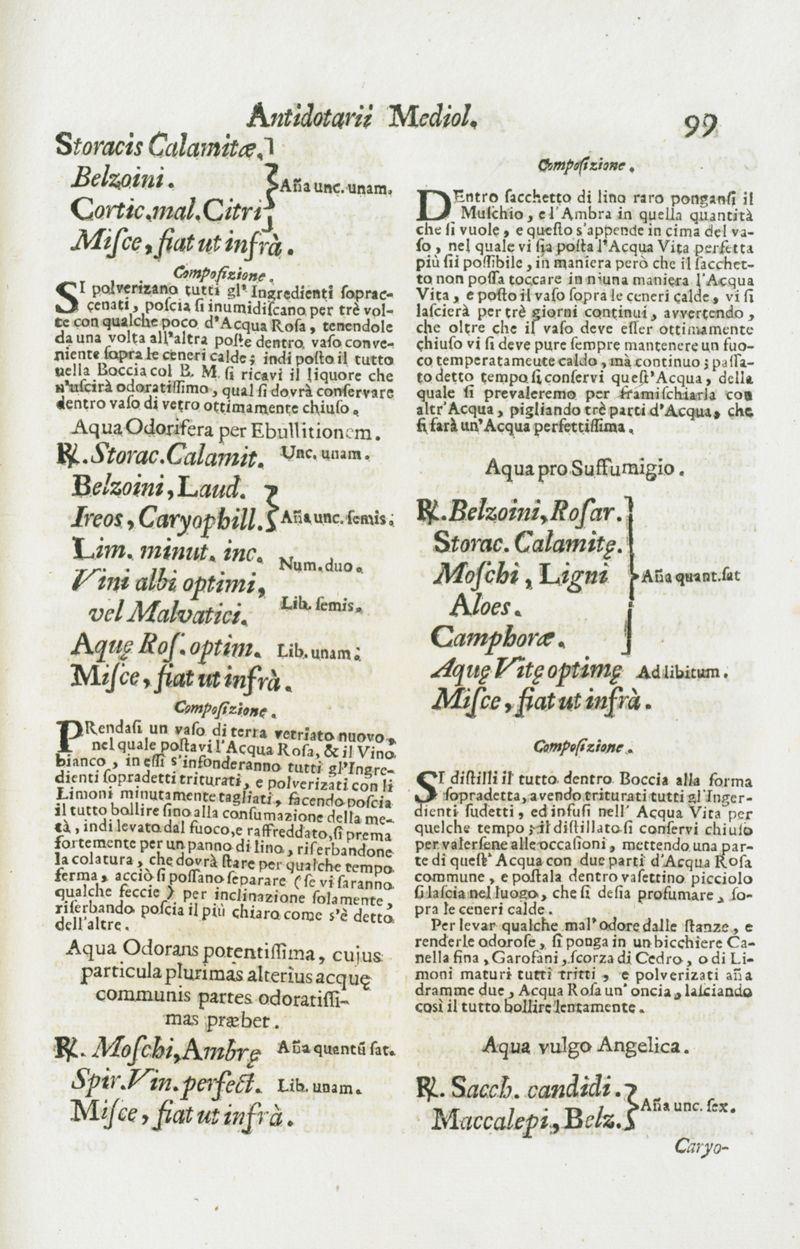 Antidotarii Mediol. 99
Storacis Calamitæ,
Belzoini.
Cortic.mal.Citri
Aña unc.unam.
Miſce, fiat ut infrà.
Compoſizione.
SI polverizano tutti gl'Ingredienti ſoprac-
cenati, poſcia ſi inumidiſcano per trè vol-
te con qualche poco d'Acqua Roſa, tenendole
da una volta all'altra poſte dentro vaſo conve-
niente ſopra le ceneri calde; indi poſto il tutto
nella Boccia col B. M. ſi ricavi il liquore che
n'uſcirà odoratiſſimo, qual ſi dovrà conſervare
dentro vaſo di vetro ottimamente chiuſo.
Aqua Odorifera per Ebullitionem.
℞. Storac. Calamit. Unc. unam.
Belzoini, Laud.
Ireos, Caryophill. Aña unc. ſemis;
Lim. minut. inc. Num. duo.
Vini albi optimi,
vel Malvatici. Lib. ſemis.
Aquę Roſ. optim. Lib. unam;
Miſce, fiat ut infrà.
Compoſizione.
PRendaſi un vaſo di terra vetriato nuovo,
nel quale poſtavi l'Acqua Roſa, & il Vino
bianco, in eſſi s'infonderanno tutti gl'Ingre-
dienti ſopradetti triturati, e polverizati con li
Limoni minutamente tagliati, facendo poſcia
il tutto bollire ſino alla conſumazione della me-
tà, indi levato dal fuoco, e raffreddato, ſi prema
fortemente per un panno di lino, riſerbandone
la colatura, che dovrà ſtare per qualche tempo
ferma, acciò ſi poſſano ſeparare (ſe vi ſaranno
qualche feccie) per inclinazione ſolamente,
riſerbando poſcia il più chiaro come s'è detto
dell'altre.
Aqua Odorans potentiſſima, cujus
particula plurimas alterius acquę
communis partes odoratiſſi-
mas præbet.
℞. Moſchi, Ambrę Aña quantũ ſat.
Spir. Vin. perfect. Lib. unam.
Miſce, fiat ut infrà.
Compoſizione.
DEntro ſacchetto di lino raro ponganſi il
Muſchio, e l'Ambra in quella quantità
che ſi vuole, e queſto s'appende in cima del va-
ſo, nel quale vi ſia poſta l'Acqua Vita perfetta
più ſii poſſibile, in maniera però che il ſacchet-
to non poſſa toccare in niuna maniera l'Acqua
Vita, e poſto il vaſo ſopra le ceneri calde, vi ſi
laſcierà per trè giorni continui, avvertendo,
che oltre che il vaſo deve eſſer ottimamente
chiuſo vi ſi deve pure ſempre mantenere un fuo-
co temperatameute caldo, mà continuo; paſſa-
to detto tempo ſi conſervi queſt'Acqua, della
quale ſi prevaleremo per framiſchiarla con
altr'Acqua, pigliando trè parti d'Acqua, che
ſi farà un'Acqua perfettiſſima.
Aqua pro Suffumigio.
℞. Belzoini, Roſar.
Storac. Calamitę.
Moſchi, Ligni
Aloes.
Camphoræ.
Aña quant. ſat
Aquę Vitę optimę Ad libitum.
Miſce, fiat ut infrà.
Compoſizione.
SI diſtilli il tutto dentro Boccia alla forma
ſopradetta, avendo triturati tutti gl'Inger-
dienti ſudetti, ed infuſi nell' Acqua Vita per
quelche tempo; il diſtillato ſi conſervi chiuſo
per valerſene alle occaſioni, mettendo una par-
te di queſt'Acqua con due parti d'Acqua Roſa
commune, e poſtala dentro vaſettino picciolo
ſi laſcia nel luogo, che ſi deſia profumare, ſo-
pra le ceneri calde.
Per levar qualche mal'odore dalle ſtanze, e
renderle odoroſe, ſi ponga in un bicchiere Ca-
nella fina, Garofani, ſcorza di Cedro, o di Li-
moni maturi tutti tritti, e polverizati aña
dramme due, Acqua Roſa un'oncia, laſciando
così il tutto bollire lentamente.
Aqua vulgo Angelica.
℞. Sacch. candidi.
Maccalepi, Belz.
Aña unc. ſex.
Caryo-